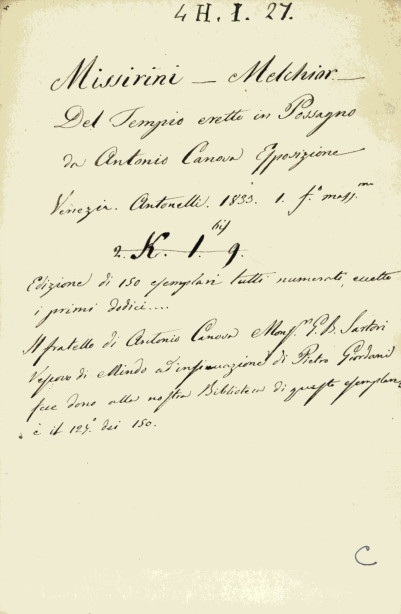 4 H. I. 27.
Missirini — Melchior —
Del Tempio eretto in Possagno
da Antonio Canova Esposizione
Venezia. Antonelli. 1833. 1. f.º mass.mo
bis
2. K. 1. 9.
Edizione di 150 esemplari tutti numerati, eccetto
i primi dodici....
Il fratello di Antonio Canova Monsr. G. B. Sartori
Vescovo di Mindo ad insinuazione di Pietro Giordani
fece dono alla nostra Biblioteca di questo esemplare
è il 125.º dei 150.
C